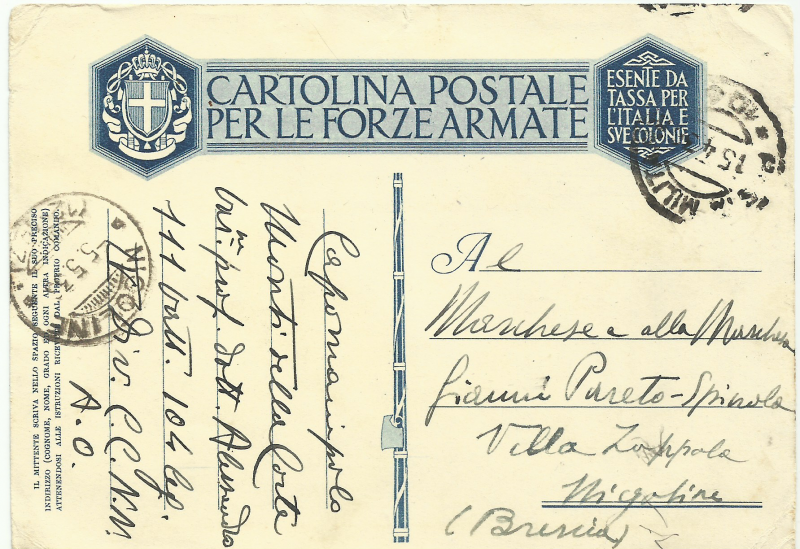 CARTOLINA POSTALE
PER LE FORZE ARMATE
ESENTE DA
TASSA PER
L'ITALIA E
SVE COLONIE
15 4
MILIT
NIGOLINE
5.5.3
IL MITTENTE SCRIVA NELLO SPAZIO SEGUENTE IL SUO PRECISO
INDIRIZZO (COGNOME, NOME, GRADO ED OGNI ALTRA INDICAZIONE)
ATTENENDOSI ALLE ISTRUZIONI RICEVUTE DAL PROPRIO COMANDO.
Capomanipolo
Monti della Corte
prof. dott. Alessandro
111 batt. 104 Leg.
Div. C.C.N.N.
A.O.
Al
Marchese e alla Marchesa
Gianni Pareto-Spinola
Villa Zoppola
Nigoline
(Brescia)